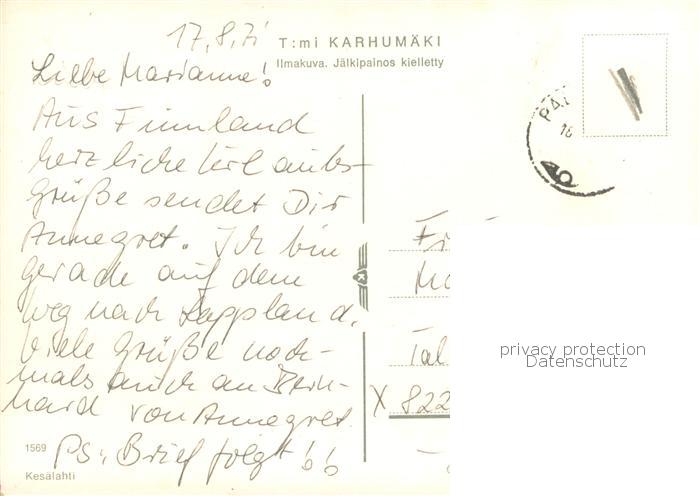 17.8.71
T:mi KARHUMÄKI
Ilmakuva. Jälkipainos kielletty
Liebe Marianne!
Aus Finnland
herzliche Urlaubs-
Grüße sendet Dir
Annegret. Ich bin
gerade auf dem
Weg nach Lappland.
Viele Grüße noch-
mals auch an Bern-
hard von Annegret.
Ps: Brief folgt!
1569
Kesälahti
Tal
X 822
privacy protection
Datenschutz